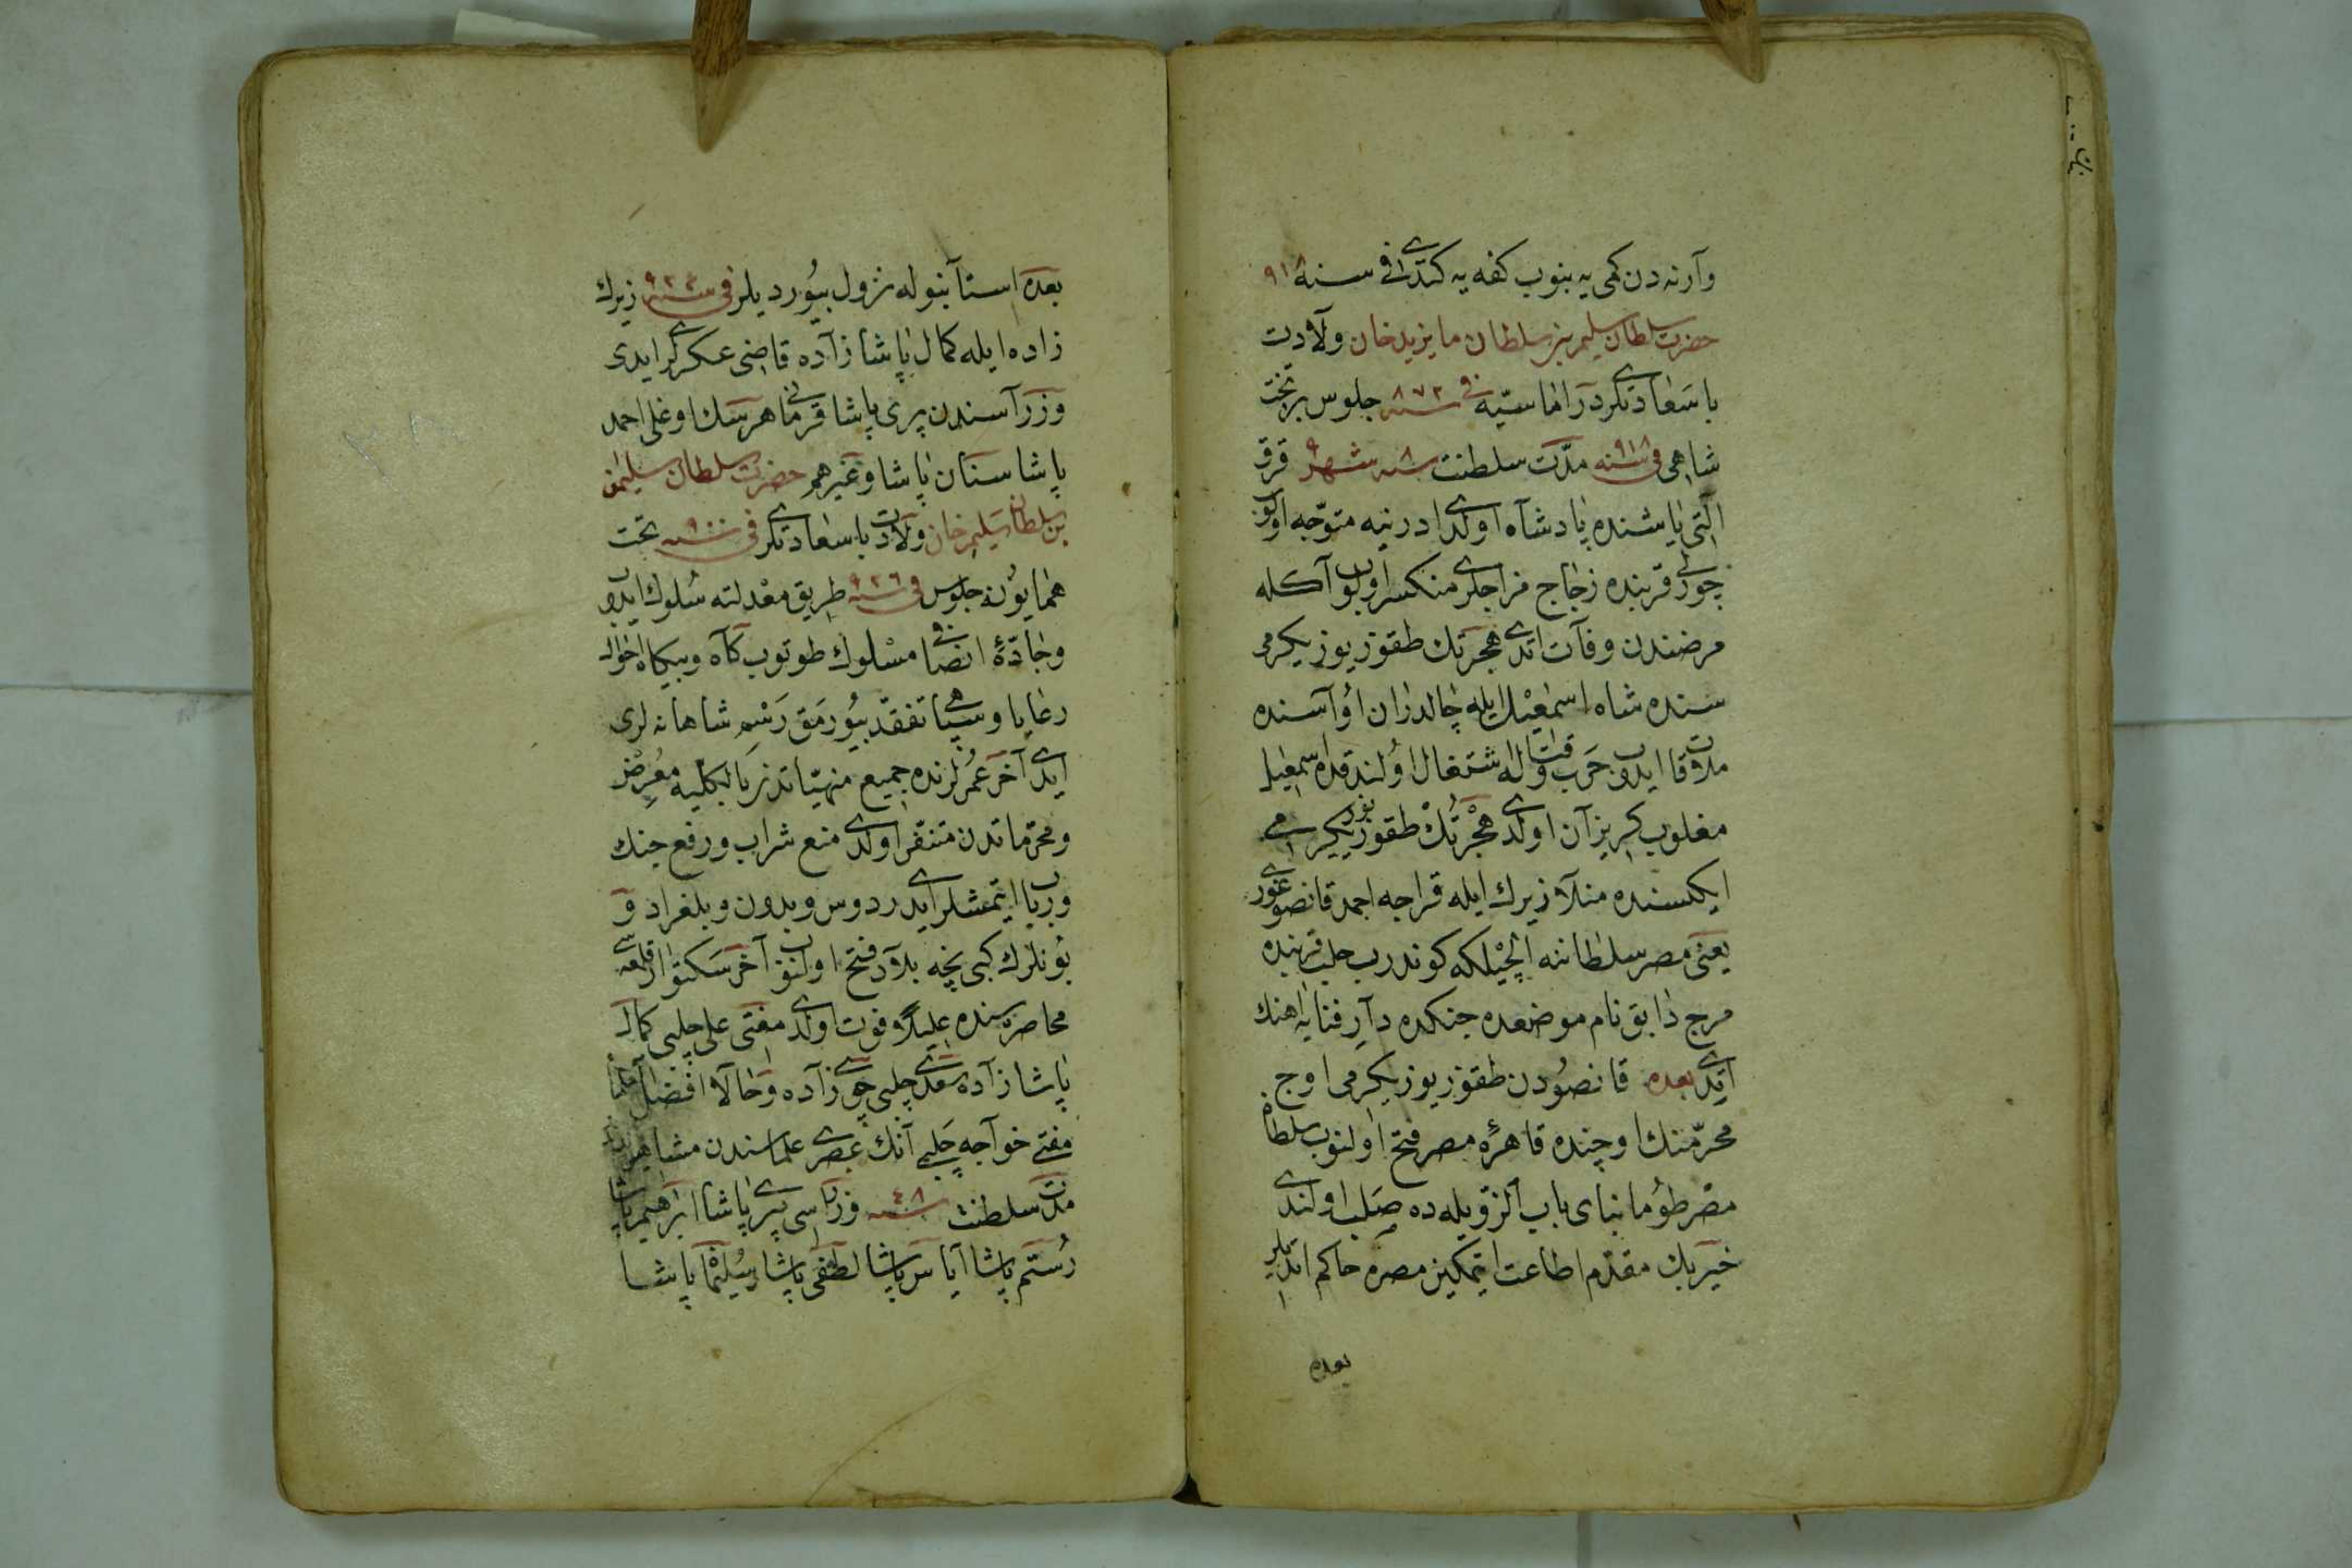 وآرنه دن كمى يه بنوب كفه يه كتدى فى سنه ٩١٨
حضرت سلطان سليم بن سلطان بايزيد خان ولادت
باسعادتلرى در اماسيّه فى سنه ٨٧٢ جلوس بر تخت
شاهى فى سنه ٩١٨ مدّت سلطنت سنه ٨ شهر ٩ قرق
التى ياشنده پادشاه اولدى ادرنيه متوجّه اولوب
چورلى قربنده زجاج مزاجلرى منكسر اولوب آكله
مرضندن وفات اتدى هجرتك طقوز يوز يكرمى
سنده شاه اسمعيل ايله چالدران اوآسنده
ملاقات ايدوب حرب وقتاله اشتغال اولندقده اسمعيل
مغلوب كريزان اولدى هجرتك طقوز يوز يكرمى
ايكسنده منلا زيرك ايله قراجه احمد قانصو غورى
يعنى مصر سلطاننه ايلچيلكه كوندرب حلب قربنده
مرج دابق نام موضعده جنكده دآر فنايه اهنك
اتدى بعده قانصودن طقوز يوز يكرمى اوج
محرّمنك اوچنده قاهرهٔ مصر فتح اولنوب سلطان
مصر طومانباى باب الزويله ده صلب اولندى
خيربك مقدّم اطاعت ايتمكين مصره حاكم اتديلر
بعده
بعده استانبوله نزول بيورديلر فى سنه ٩٢٤ زيرك
زاده ايله كمال پاشا زاده قاضى عسكرلر ايدى
وزرآسندن پيرى پاشا قرمانى هرسك اوغلى احمد
پاشا سنان پاشا وغيرهم حضرت سلطان سليمان
بن سلطان سليم خان ولادت باسعادتلرى فى سنه ٩٠٠ تخت
همايونه جلوس فى سنه ٩٢٦ طريق معدلته سلوك ايدوب
وجادّهٔ انصافى مسلوك طوتوب كآه وبيكاه احوال
رعايا وسپاهى تفقد بيورمق رسم شاهانه لرى
ايدى آخر عمرلرنده جميع منهيّاتدن بالكليه معرض
ومحرّماتدن متنفّر اولدى منع شراب ورفع جنك
ورباب ايتمشلر ايدى ردوس وبدون وبلغراد و
بونلرك كبى نيچه بلاد فتح اولنوب آخر سكتوار قلعه سى
محاصره سنده عليلا فوت اولدى مفتى على چلبى كمال
پاشا زاده سعدى چلبى جوى زاده وحالا افضل علما
مفتى خواجه چلبى آنك عصرى علماسندن مشاهيردن
مدّت سلطنت سنه ٤٨ وزراسى پيرى پاشا ابراهيم پاشا
رستم پاشا اياس پاشا لطفى پاشا سليمان پاشا